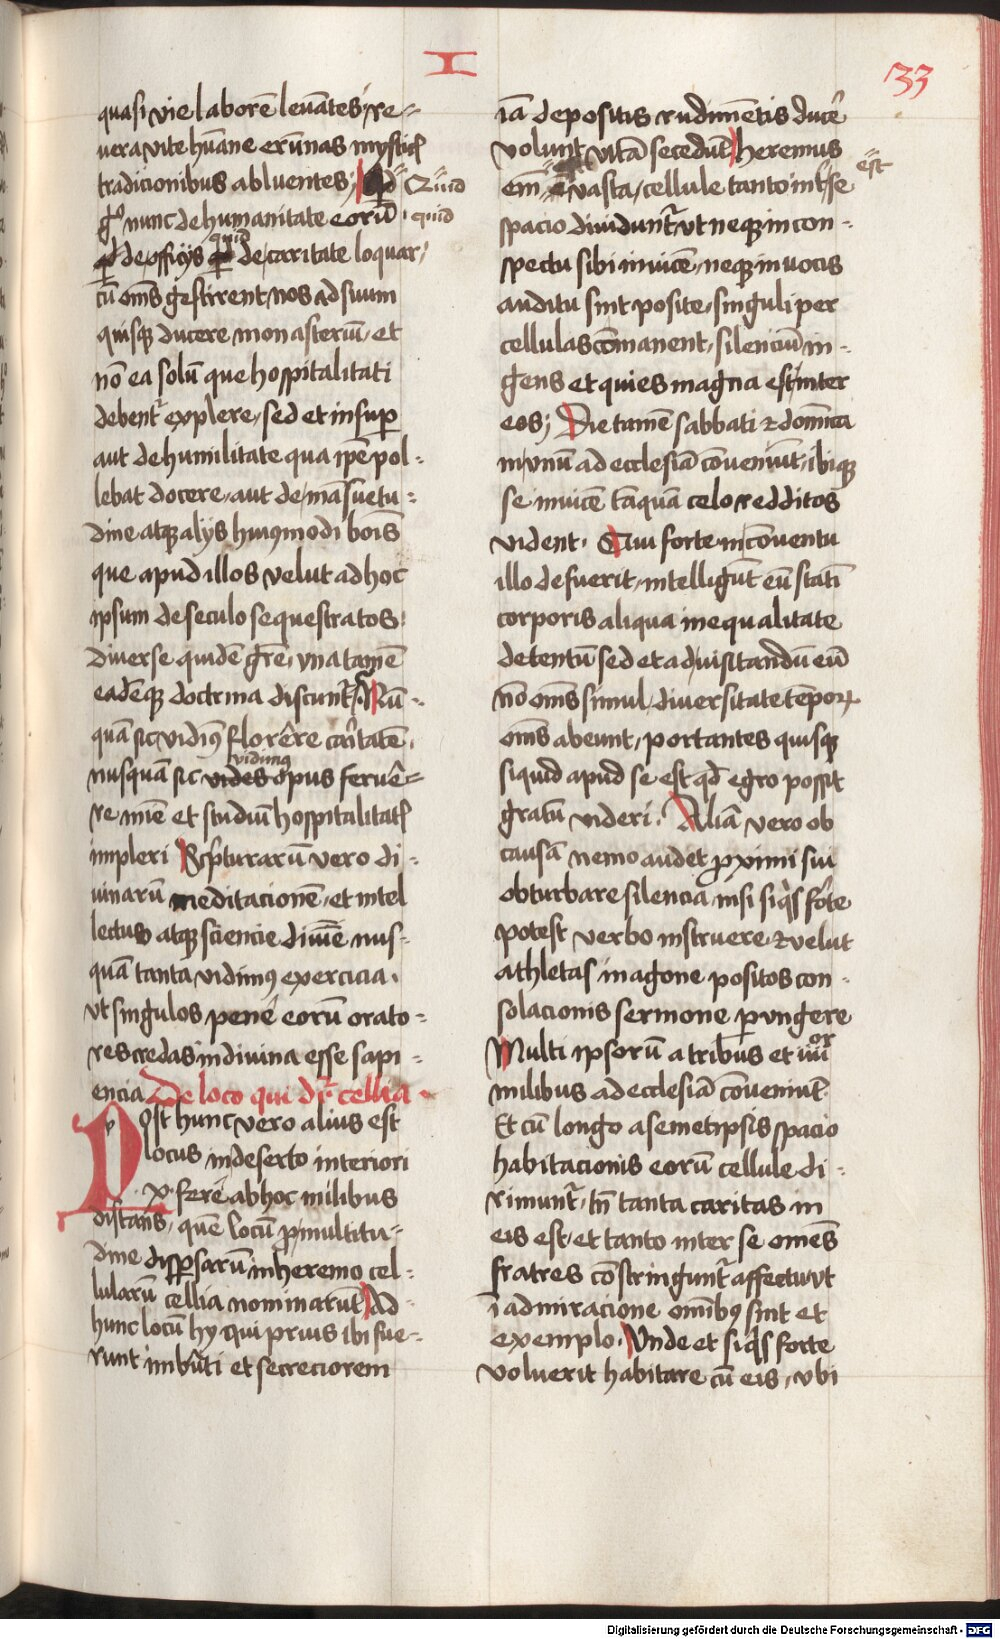 I
33
quasi vie laborē levātes, re-
uera vite hūane erūnas mysticꝭ
tradicionibus abluentes; Quid
gͦ nunc de humanitate eorū quid
de officijs quid de caritate loquar,
cū om̄s gestirent nos ad suum
quisqꝫ ducere monasteriū, et
nō ea solū que hospitalitati
debent᷑ explere, sed et insuꝑ
aut de humilitate qua ip̄e pol-
lebat docere, aut de māsuetu-
dine atqꝫ alijs huiꝰmodi bois̄
que apud illos velut ad hoc
ipsum de seculo sequestratos,
diuerse quidē gr̄e, vna tamē
eadēqꝫ doctrina discunt᷑. Nū-
quā sic vidimꝰ florēre caritatē,
nusquā sic vidimus opus feruē-
re mīe et studiū hospitalitatꝭ
impleri Scͥpturarū vero di-
uinarū meditacionē, et intel
lectus atqꝫ sciencie diuīe nus-
quā tanta vidimꝰ exercicia.
vt singulos pene eorū orato-
res credas in diuina esse sapi-
encia De loco qui dr̄ cellia
Post hunc vero alius est
locus in deserto interiori
.x. fere ab hoc milibus
distans, quē locū ꝓ multitu-
dine disꝑsarū in heremo cel-
lularū cellia nominarūt Ad
hunc locū hy qui prius ibi fue-
runt imbuti et secreciorem
iā depositis rudimētis ducē
volunt vitā secedūt heremus
em̄ est vasta, cellule tanto int᷑ se est
spacio diuidunt᷑ vt neqꝫ in con-
spectu sibi inuicē, neqꝫ in vocis
auditu sint posite, singuli per
cellulas cōmanent, silenciū in-
gens et quies magna est inter
eos; Die tamē sabbati ⁊ domīca
in vnū ad ecclesiā cōueniūt, ibiqꝫ
se inuicē tāquā celo redditos
vident. Qui forte in cōuentu
illo defuerit, intelligūt eū statī
corporis aliqua inequalitate
detentū sed et ad visitandū eū
nō om̄s simul, diuersitate tēporꝝ
om̄s abeunt, portantes quisqꝫ
si quid apud se est qd̄ egro possit
gratū videri. Aliā vero ob
causā nemo audet ꝓximi sui
obturbare silencia, nisi siqͥs forte
potest verbo instruere, ⁊ velut
athletas in agone positos con-
solacionis sermone ꝑungere
Multi ipsorū a tribus et iiiior
milibus ad ecclesiā cōueniūt
Et cū longo a semetipsis spacio
habitacionis eorū cellule di-
rimunt᷑, tn̄ tanta caritas in
eis est, et tanto inter se omēs
fratres cōstringunt᷑ affectu, vt
ī admiracione omībꝰ sint et
exemplo. Unde et siqͥs forte
voluerit habitare cū eis, vbi
Digitalisierung gefördert durch die Deutsche Forschungsgemeinschaft - DFG